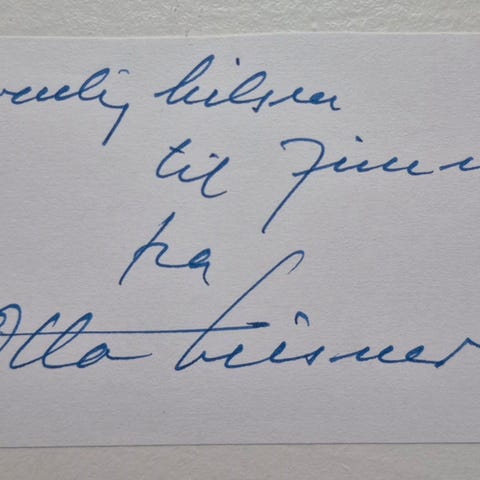 venlig hilsen
til Finn
fra
Otto Leisner